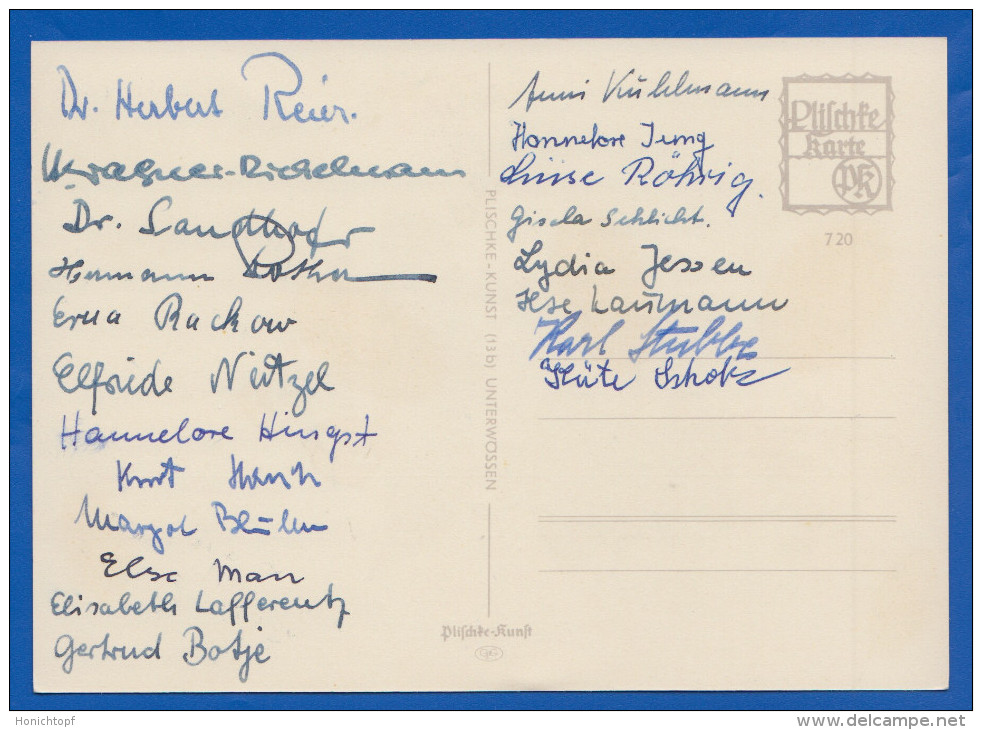 Dr. Herbert Reier.
Dr. Sandhofer
Hermann
Erna Rackow
Elfriede Neitzel
Hannelore Hingst
Kurt
Margot Blühm
Else Man
Elisabeth Lafferentz
Gertrud Botje
PLISCHKE-KUNST (13b) UNTERWÖSSEN
Plischke-Kunst
Anni Kuhlmann
Hannelore Jung
Luise Röhrig.
Gisela Schlicht.
Lydia Jessen
Ilse Laumann
Karl Stubbe
Käte Scholz
Plischke
Karte
PK
720
Honichtopf
www.delcampe.net